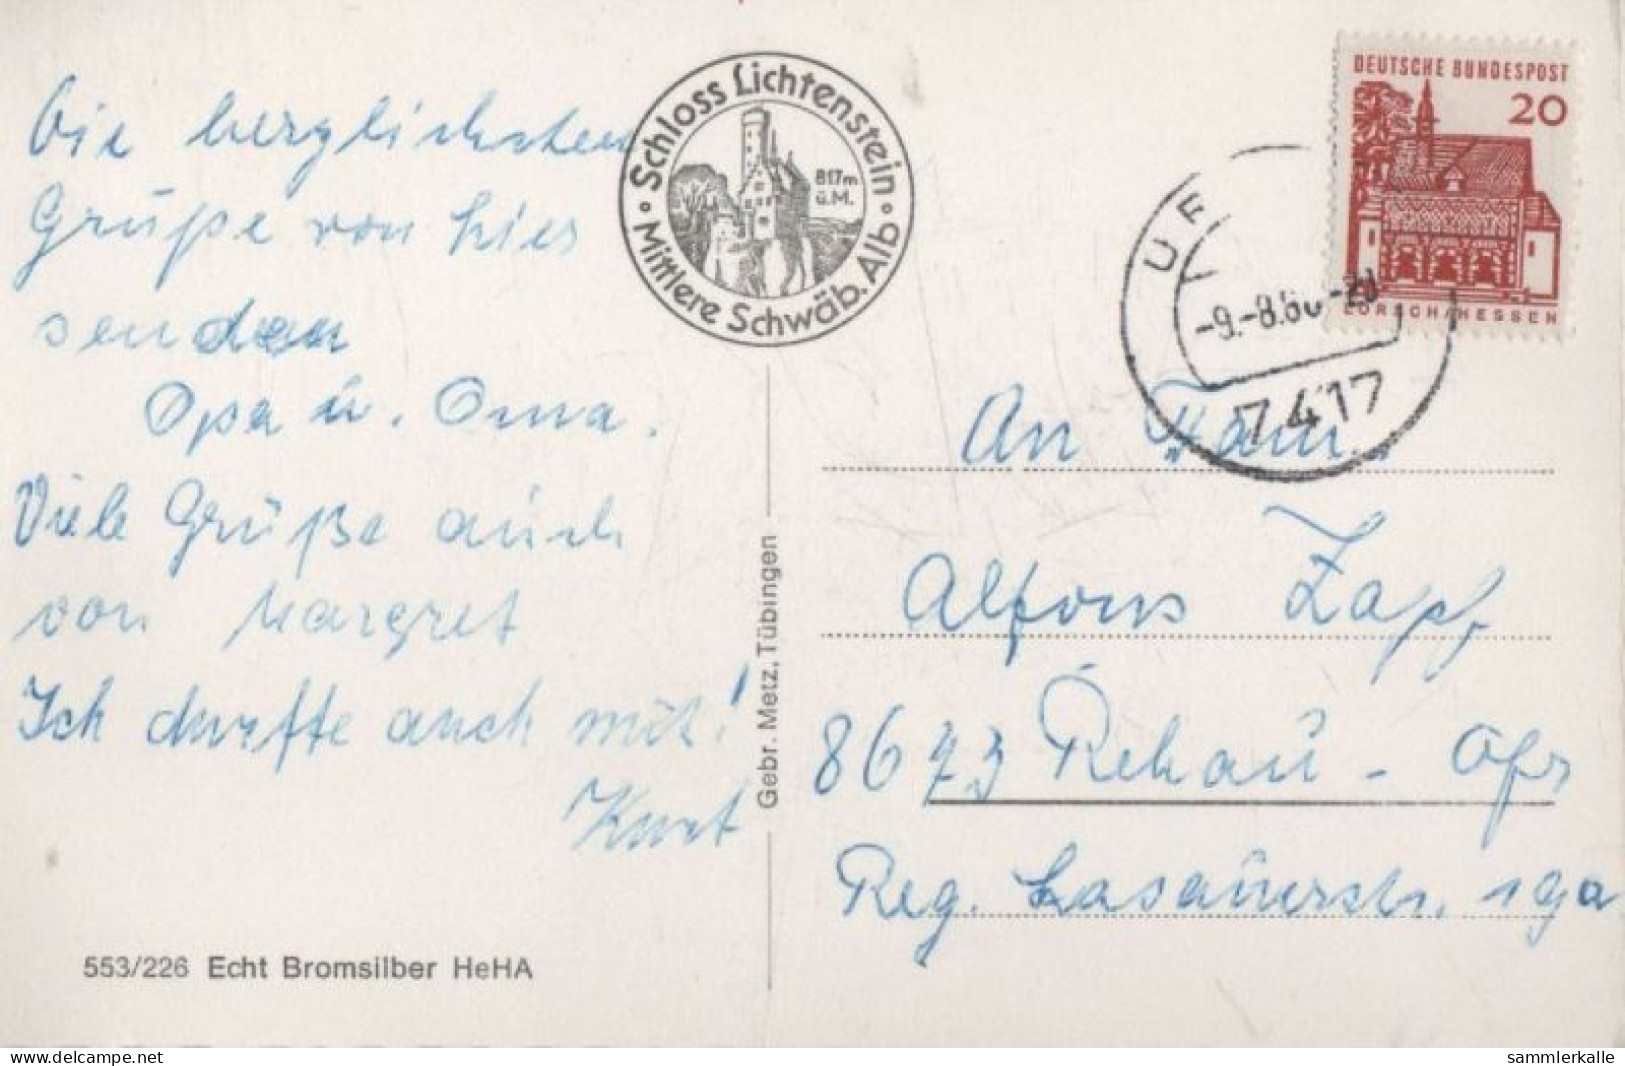 Die herzlichsten
Grüße von hier
senden
Opa u. Oma.
Viele Grüße auch
von Margret
Ich durfte auch mit!
Kurt
553/226 Echt Bromsilber HeHA
Schloss Lichtenstein
817m
ü.M.
Mittlere Schwäb. Alb
Gebr. Metz, Tübingen
DEUTSCHE BUNDESPOST
20
LORSCH/HESSEN
-9.-8.66-20
7417
An Fam.
Alfons Zapf
8673 Rehau - Ofr
Reg. 19a
www.delcampe.net
sammlerkalle